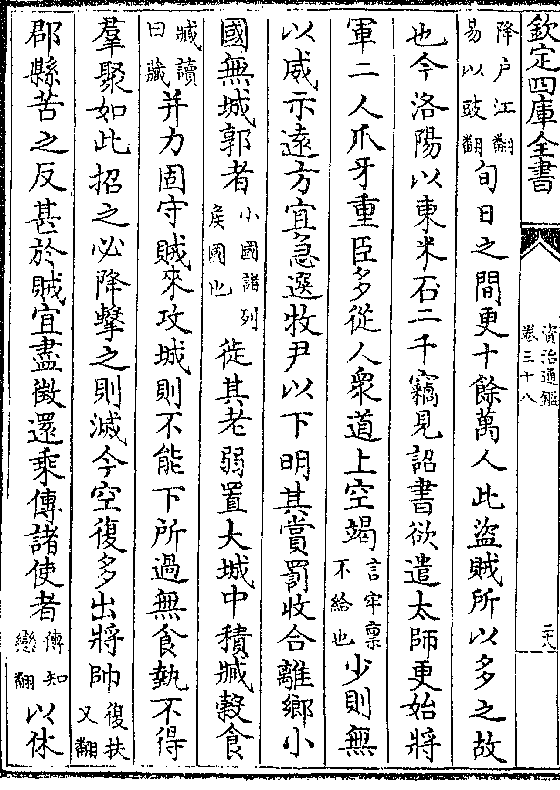 欽定四庫全書
資治通鑑
卷三十八
二十八
降户江翻
易以豉翻
旬日之間更十餘萬人此盜賊所以多之故
也今洛陽以東米石二千竊見詔書欲遣太師更始將
軍二人爪牙重臣多從人衆道上空竭
言牢稟
不給也
少則無
以威示遠方宜急選牧尹以下明其賞罰收合離鄉小
國無城郭者
小國諸列
侯國也
徙其老弱置大城中積臧穀食
臧讀
曰藏
并力固守賊來攻城則不能下所過無食埶不得
羣聚如此招之必降擊之則滅今空復多出將帥
復扶
又翻
郡縣苦之反甚於賊宜盡徵還乘傳諸使者
傳知
戀翻
以休